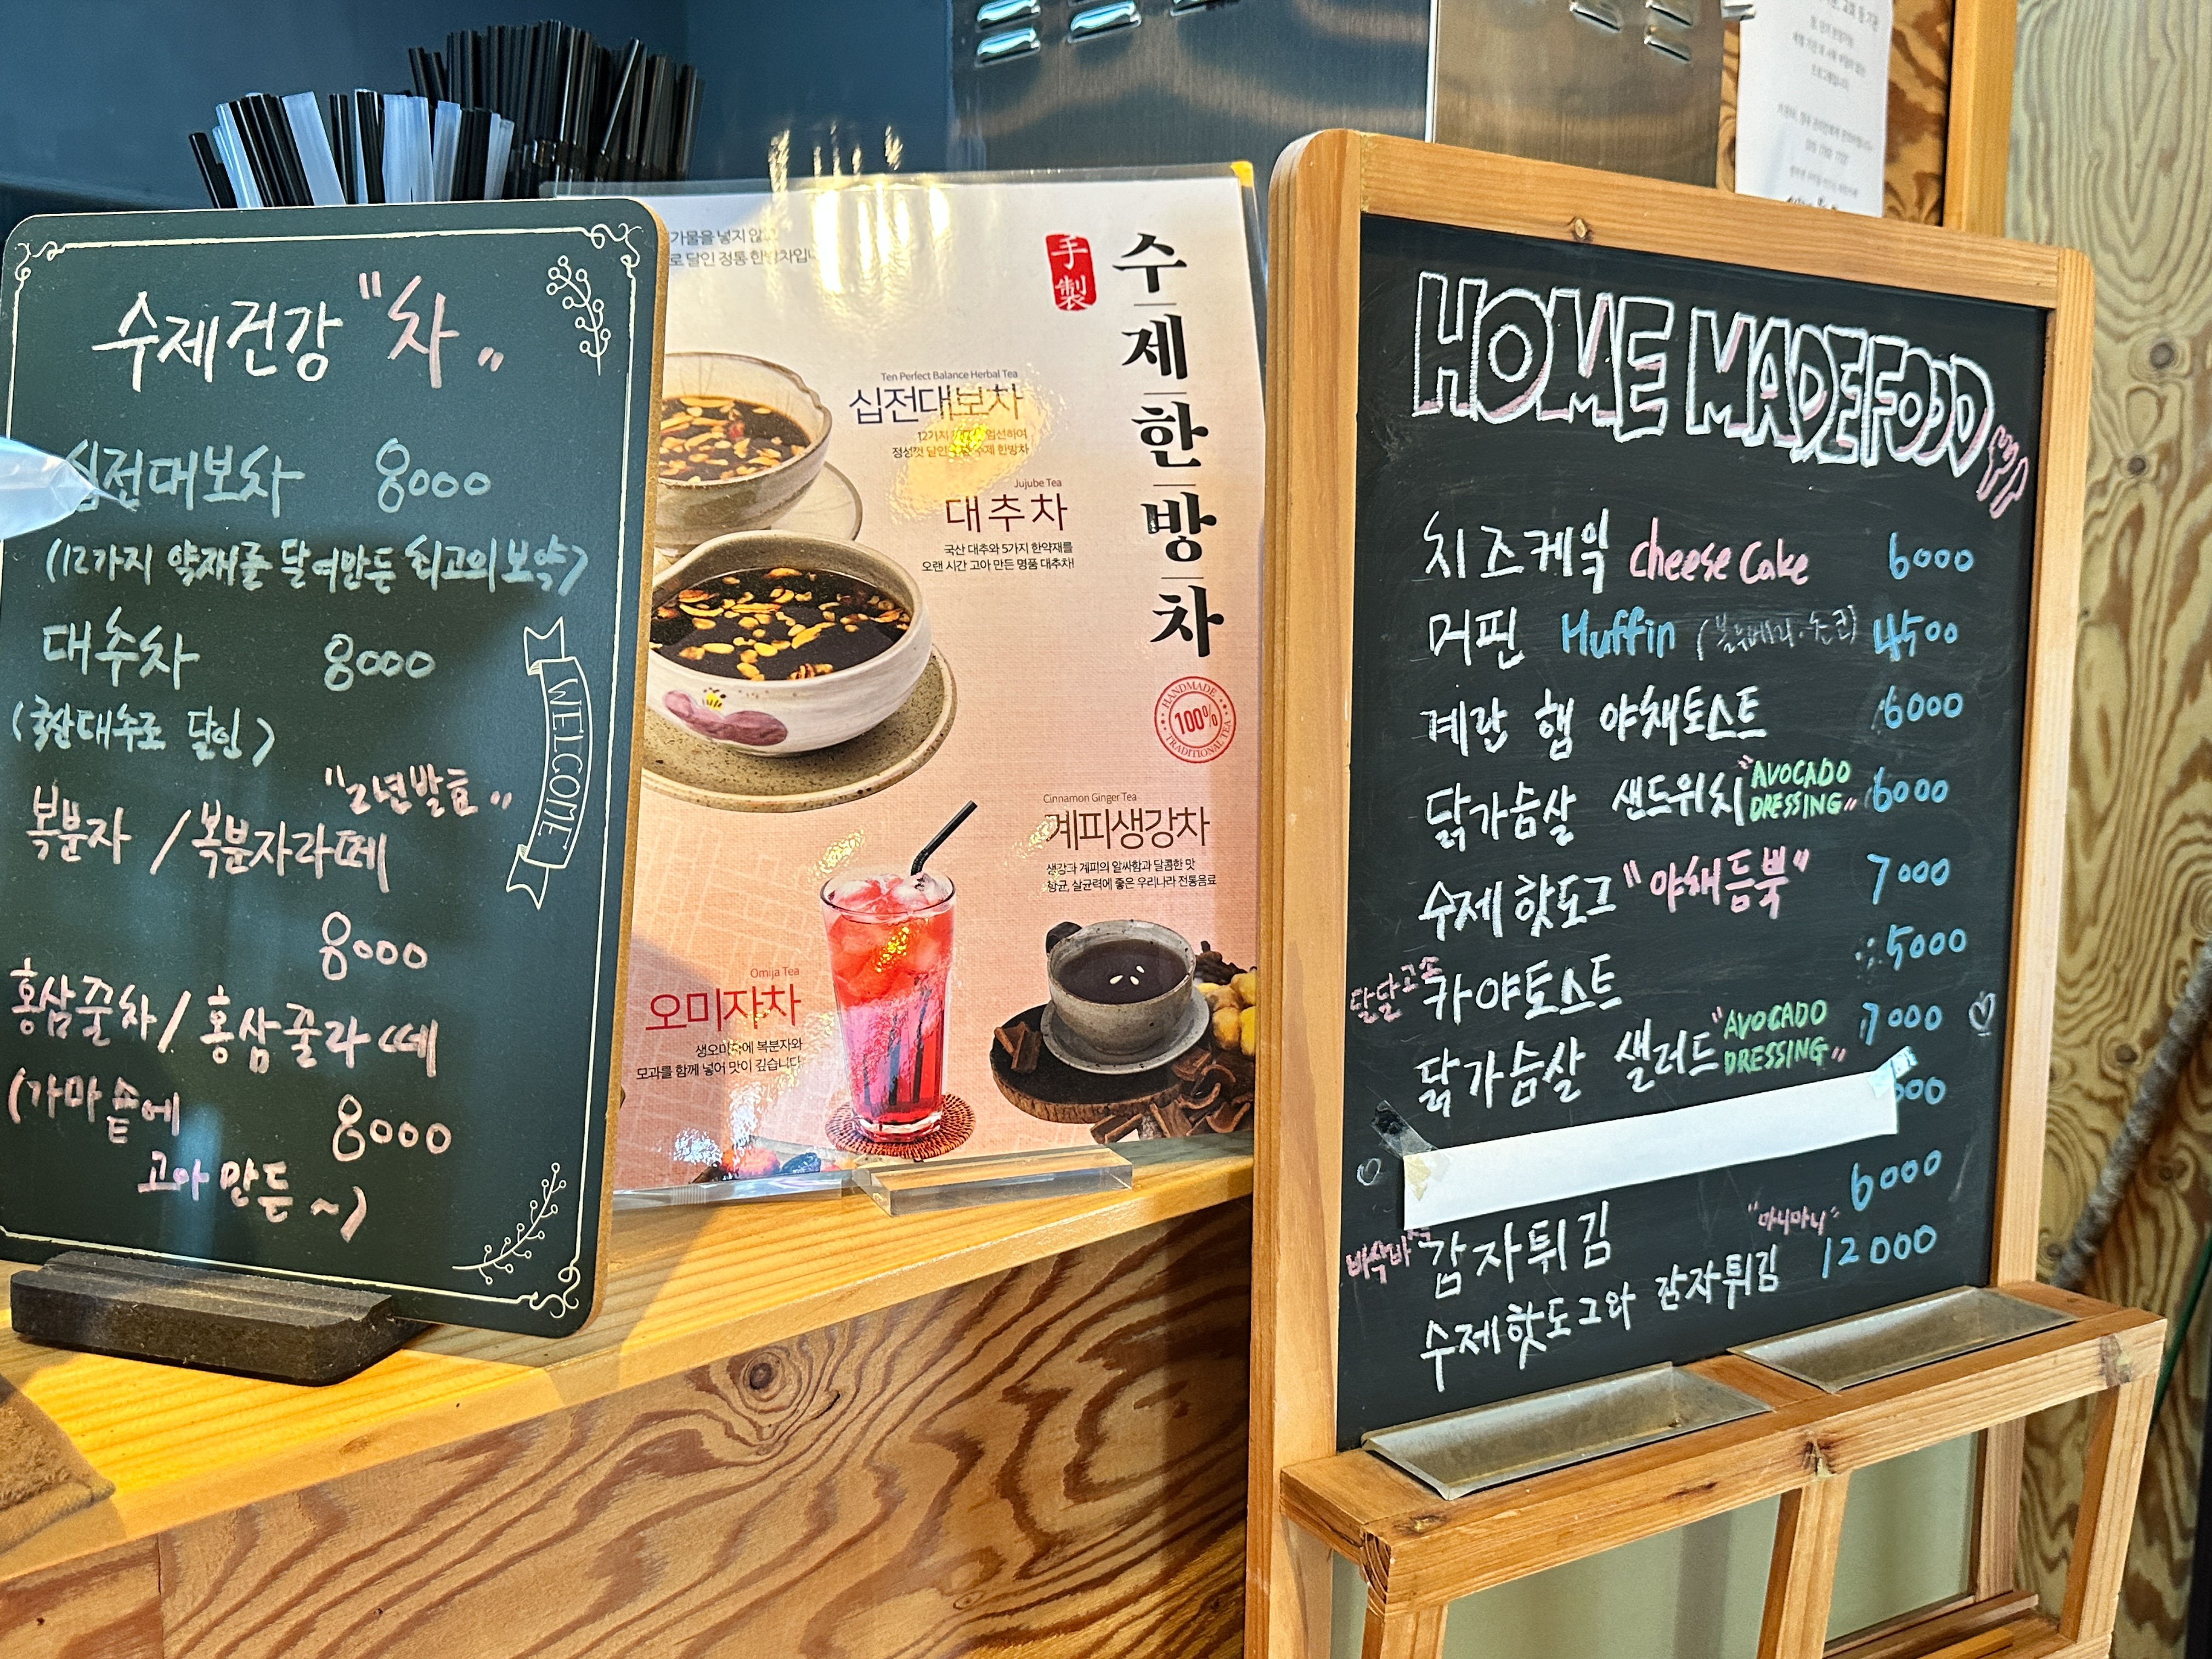 수제건강 "차"
십전대보차 8000
(12가지 약재를 달여만든 최고의 보약)
대추차 8000
(국산대추로 달인)
"2년발효"
복분자 / 복분자라떼
8000
홍삼꿀차 / 홍삼꿀라떼
(가마솥에 8000
고아 만든~)
WELCOME
가물을 넣지 않고
로 달인 정통 한방차입니
手製
수제한방차
Ten Perfect Balance Herbal Tea
십전대보차
12가지 엄선하여
정성껏 달인 수제 한방차
Jujube Tea
대추차
국산 대추와 5가지 한약재를
오랜 시간 고아 만든 명품 대추차!
HANDMADE
100%
TRADITIONAL TEA
Cinnamon Ginger Tea
계피생강차
생강과 계피의 알싸함과 달콤한 맛
항균, 살균력에 좋은 우리나라 전통음료
Omija Tea
오미자차
생오미자에 복분자와
모과를 함께 넣어 맛이 깊습니다
HOME MADE FOOD
치즈케익 cheese cake 6000
머핀 Muffin (블루베리·초코) 4500
계란 햄 야채토스트 6000
닭가슴살 샌드위치 "AVOCADO DRESSING" 6000
수제핫도그 "야채듬뿍" 7000
달달고소 카야토스트 5000
닭가슴살 샐러드 "AVOCADO DRESSING" 7000
바삭바삭 감자튀김 6000
수제핫도그와 감자튀김 "마니마니" 12000